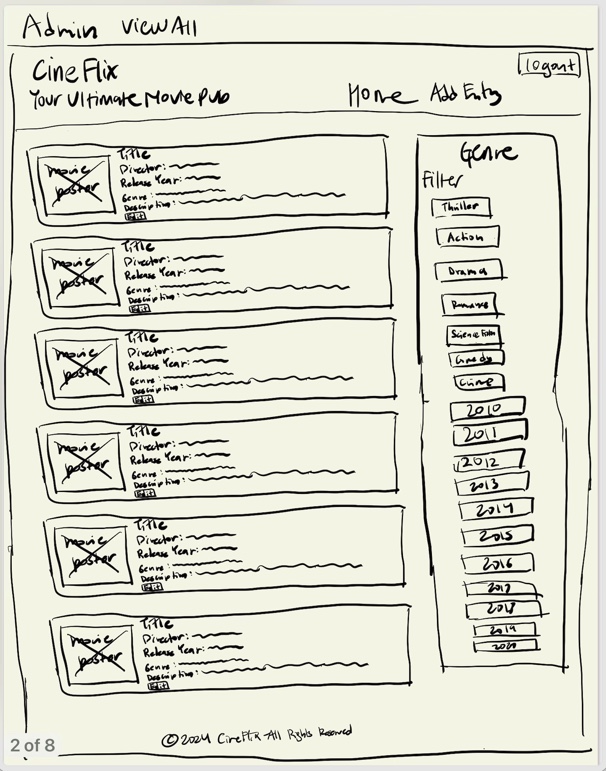 Admin View All
logout
CineFlix
Your Ultimate Movie Pub
Home Add Entry
movie poster
Title
Director:
Release Year:
Genre:
Description:
Edit
movie poster
Title
Director:
Release Year:
Genre:
Description:
Edit
movie poster
Title
Director:
Release Year:
Genre:
Description:
Edit
movie poster
Title
Director:
Release Year:
Genre:
Description:
Edit
movie poster
Title
Director:
Release Year:
Genre:
Description:
Edit
movie poster
Title
Director:
Release Year:
Genre:
Description:
Edit
Genre
Filter
Thriller
Action
Drama
Romance
Science Fiction
Comedy
Crime
2010
2011
2012
2013
2014
2015
2016
2017
2018
2019
2020
©2024 CineFlix All Rights Reserved
2 of 8